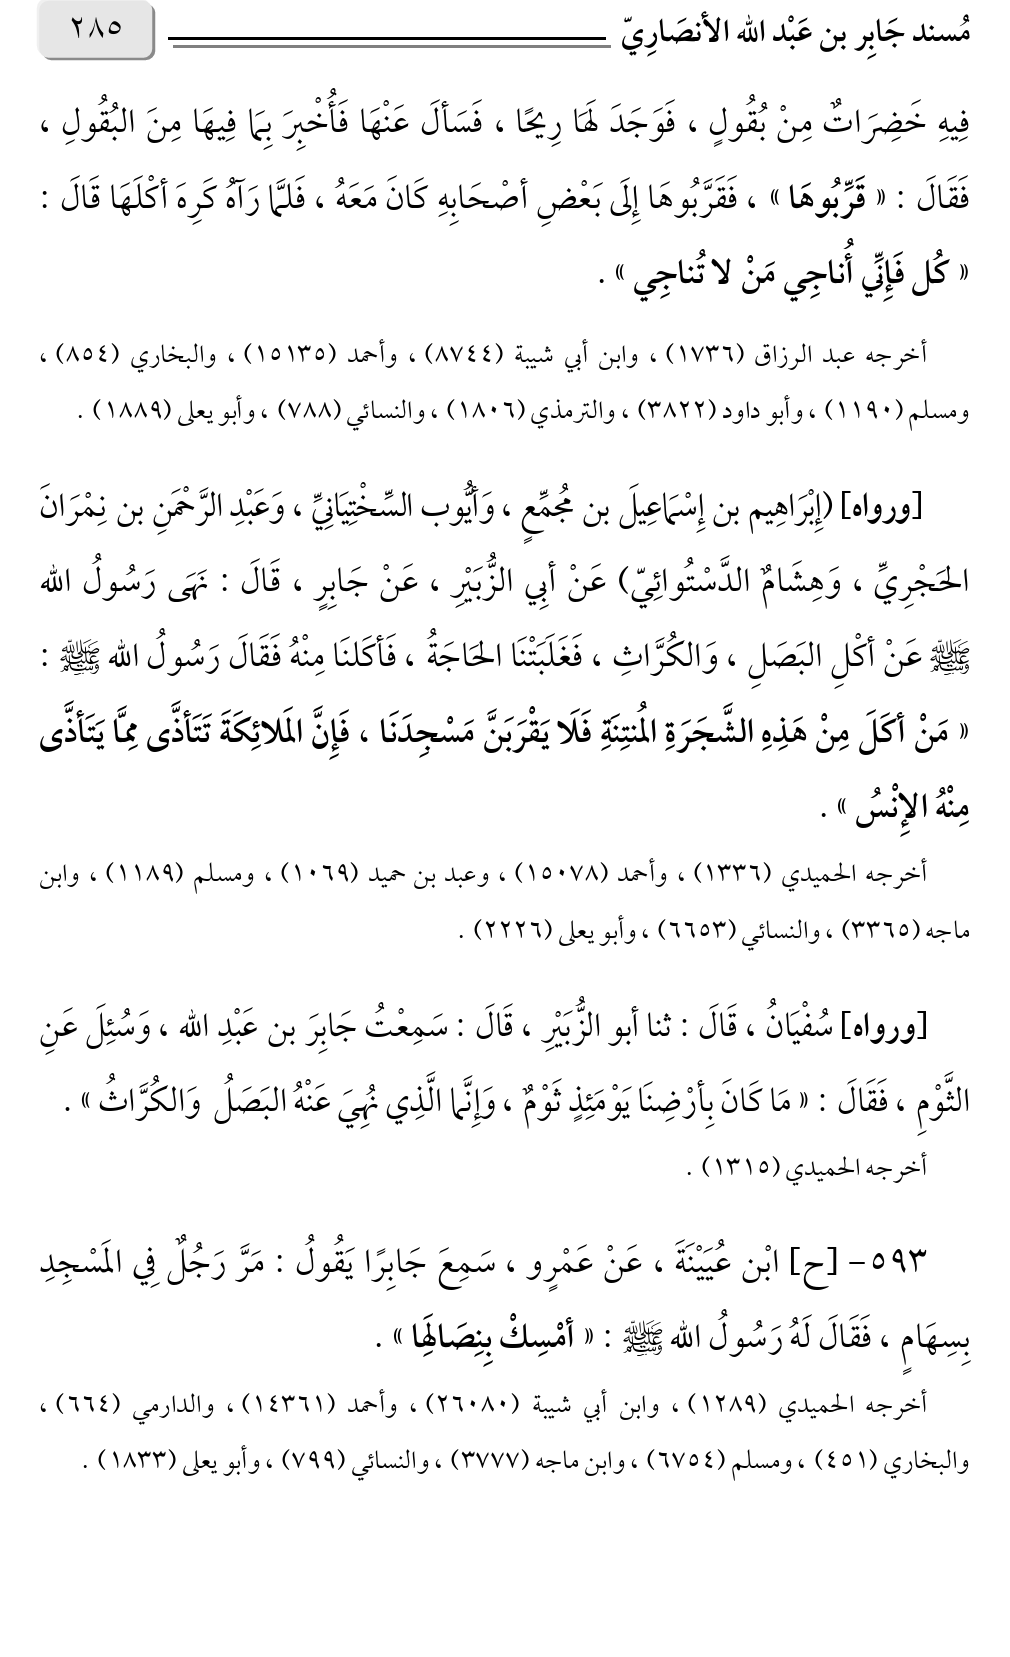 مُسند جَابِر بن عَبْد الله الأنصَارِيّ ٢٨٥
فِيهِ خَضِرَاتٌ مِنْ بُقُولٍ ، فَوَجَدَ لَهَا رِيحًا ، فَسَألَ عَنْهَا فَأُخْبِرَ بِمَا فِيهَا مِنَ البُقُولِ ،
فَقَالَ : « قَرِّبُوهَا » ، فَقَرَّبُوهَا إِلَى بَعْضِ أصْحَابِهِ كَانَ مَعَهُ ، فَلمَّا رَآهُ كَرِهَ أكْلَهَا قَالَ :
« كُل فَإِنِّي أُناجِي مَنْ لا تُناجِي » .
أخرجه عبد الرزاق (١٧٣٦) ، وابن أبي شيبة (٨٧٤٤) ، وأحمد (١٥١٣٥) ، والبخاري (٨٥٤) ،
ومسلم (١١٩٠) ، وأبو داود (٣٨٢٢) ، والترمذي (١٨٠٦) ، والنسائي (٧٨٨) ، وأبو يعلى (١٨٨٩) .
[ورواه] (إِبْرَاهِيم بن إِسْمَاعِيلَ بن مُجَمِّعٍ ، وَأيُّوب السِّخْتِيَانِيِّ ، وَعَبْدِ الرَّحْمَنِ بن نِمْرَانَ
الحَجْرِيِّ ، وَهِشَامٌ الدَّسْتُوائِيّ) عَنْ أبِي الزُّبَيْرِ ، عَنْ جَابِرٍ ، قَالَ : نَهَى رَسُولُ الله
ﷺ عَنْ أكْلِ البَصَلِ ، وَالكُرَّاثِ ، فَغَلَبَتْنَا الحَاجَةُ ، فَأكَلنَا مِنْهُ فَقَالَ رَسُولُ الله ﷺ :
« مَنْ أكَلَ مِنْ هَذِهِ الشَّجَرَةِ المُنتِنَةِ فَلَا يَقْرَبَنَّ مَسْجِدَنَا ، فَإِنَّ المَلائِكَةَ تَتَأذَّى مِمَّا يَتَأذَّى
مِنْهُ الإِنْسُ » .
أخرجه الحميدي (١٣٣٦) ، وأحمد (١٥٠٧٨) ، وعبد بن حميد (١٠٦٩) ، ومسلم (١١٨٩) ، وابن
ماجه (٣٣٦٥) ، والنسائي (٦٦٥٣) ، وأبو يعلى (٢٢٢٦) .
[ورواه] سُفْيَانُ ، قَالَ : ثنا أبو الزُّبَيْرِ ، قَالَ : سَمِعْتُ جَابِرَ بن عَبْدِ الله ، وَسُئِلَ عَنِ
الثَّوْمِ ، فَقَالَ : « مَا كَانَ بِأرْضِنَا يَوْمَئِذٍ ثَوْمٌ ، وَإِنَّما الَّذِي نُهِيَ عَنْهُ البَصَلُ وَالكُرَّاثُ » .
أخرجه الحميدي (١٣١٥) .
٥٩٣- [ح] ابْن عُيَيْنَةَ ، عَنْ عَمْرٍو ، سَمِعَ جَابِرًا يَقُولُ : مَرَّ رَجُلٌ فِي المَسْجِدِ
بِسِهَامٍ ، فَقَالَ لَهُ رَسُولُ الله ﷺ : « أمْسِكْ بِنِصَالِهَا » .
أخرجه الحميدي (١٢٨٩) ، وابن أبي شيبة (٢٦٠٨٠) ، وأحمد (١٤٣٦١) ، والدارمي (٦٦٤) ،
والبخاري (٤٥١) ، ومسلم (٦٧٥٤) ، وابن ماجه (٣٧٧٧) ، والنسائي (٧٩٩) ، وأبو يعلى (١٨٣٣) .